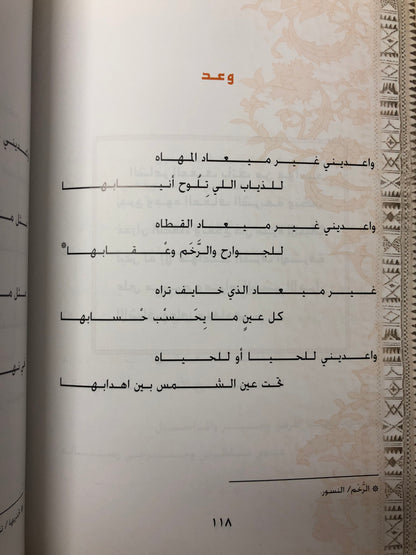 وعد
واعديني غير ميعاد المهاه
للذياب اللي تلُوح أنيابها
واعديني غير ميعاد القطاه
للجوارح والرَّخَم وعْقابها*
غير ميعاد الذي خايف تراه
كل عينٍ ما بِحَسْب حْسابها
واعديني للحيا أو للحياه
تحت عين الشمس بين اهدابها
* الرَّخَم/ النسور
١١٨